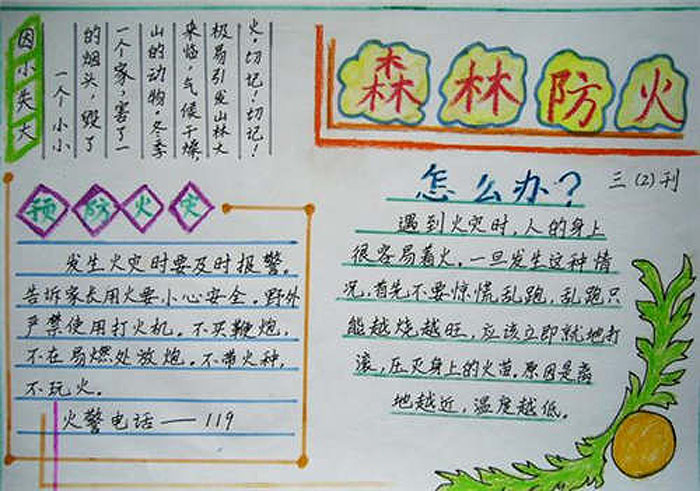 森林防火
三(2)刊
因小失大
一个小小
的烟头,毁了
一个家,害了一
山的动物。冬季
来临,气候干燥,
极易引发山林大
火,切记!切记!
预防火灾
发生火灾时要及时报警。
告诉家长用火要小心安全。野外
严禁使用打火机。不买鞭炮,
不在易燃处放炮。不带火种,
不玩火。
火警电话——119
怎么办?
遇到火灾时,人的身上
很容易着火。一旦发生这种情
况,首先不要惊慌乱跑,乱跑只
能越烧越旺,应该立即就地打
滚,压灭身上的火苗,原因是离
地越近,温度越低。